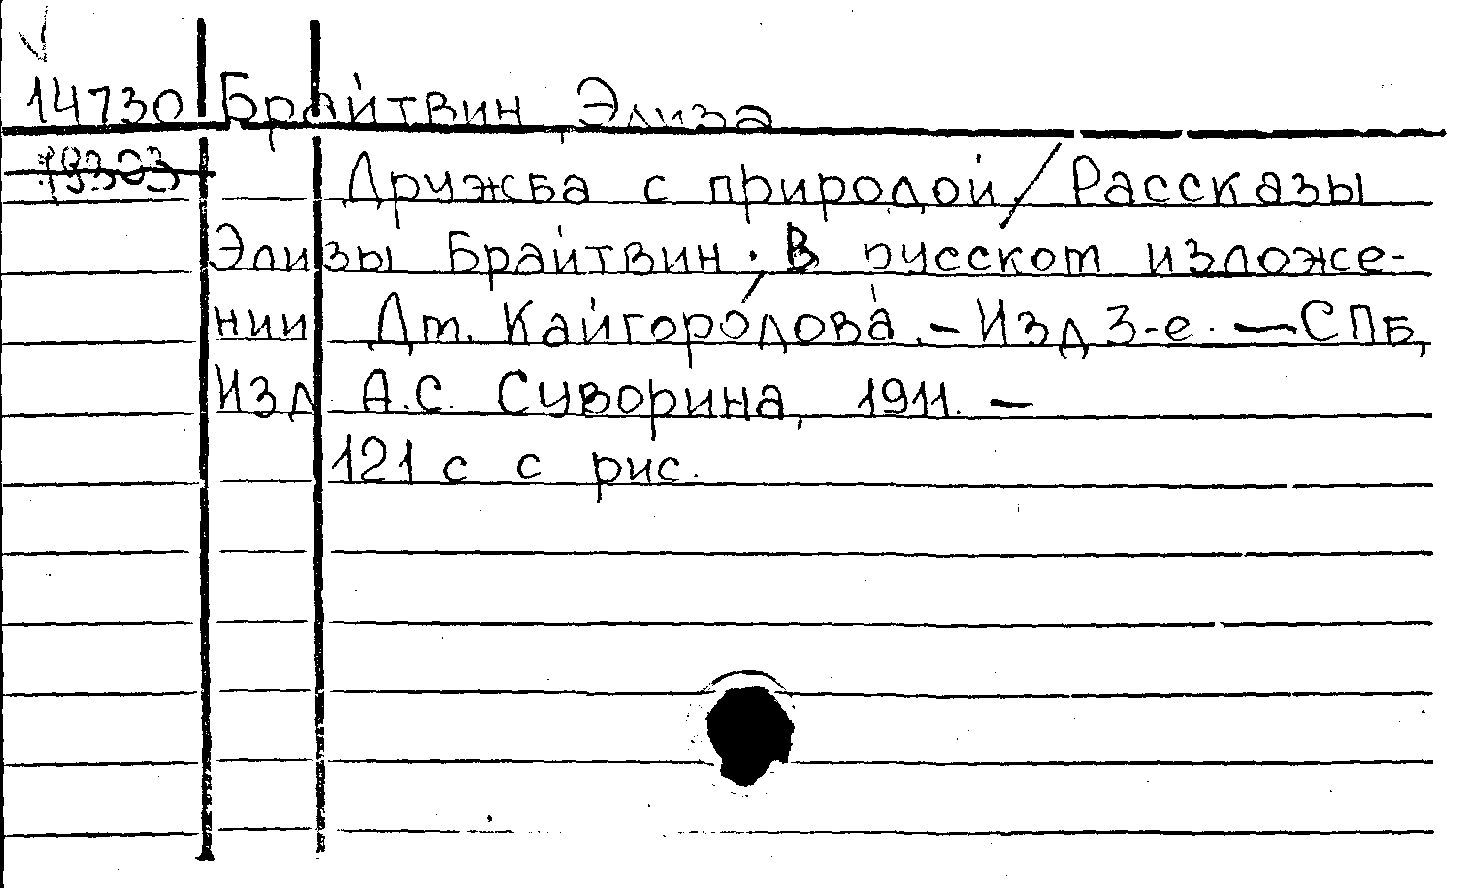 14730 Брайтвин, Элиза
19303 Дружба с природой / Рассказы
Элизы Брайтвин; В русском изложе-
нии Дм. Кайгородова. - Изд 3-е. — СПб,
Изд А.С. Суворина, 1911. —
121 с с рис.